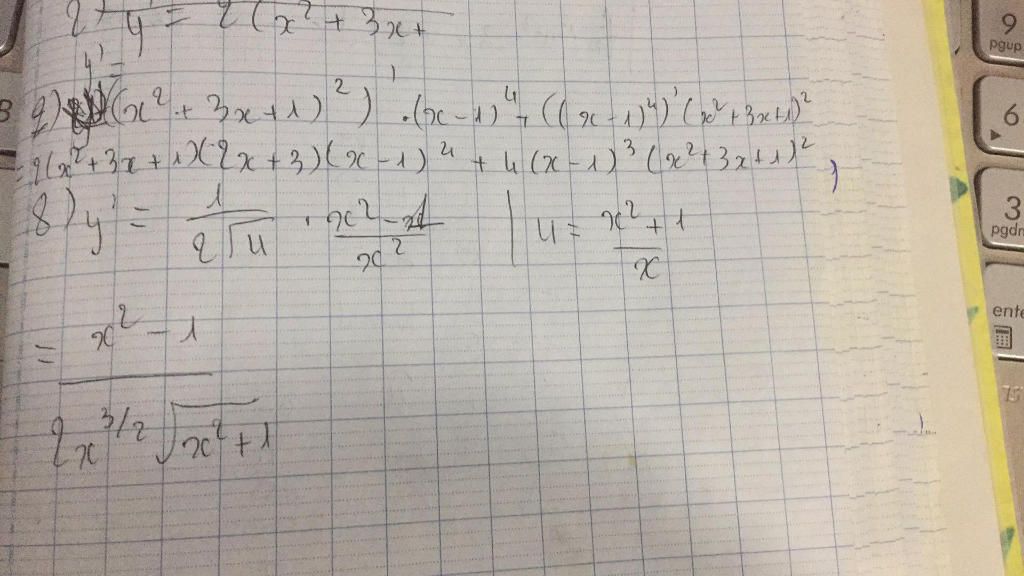 2) y' = 2(x² + 3x +
y' =
2) ((x² + 3x + 1)²)' · (x - 1)⁴ + ((x - 1)⁴)' (x² + 3x + 1)²
= 2(x² + 3x + 1)(2x + 3)(x - 1)⁴ + 4(x - 1)³ (x² + 3x + 1)²
8) y' = 1/(2√u) · (x² - 1)/x² | u = (x² + 1)/x
= (x² - 1)/(2x^(3/2) √(x² + 1))
9
pgup
6
3
pgdn
ente